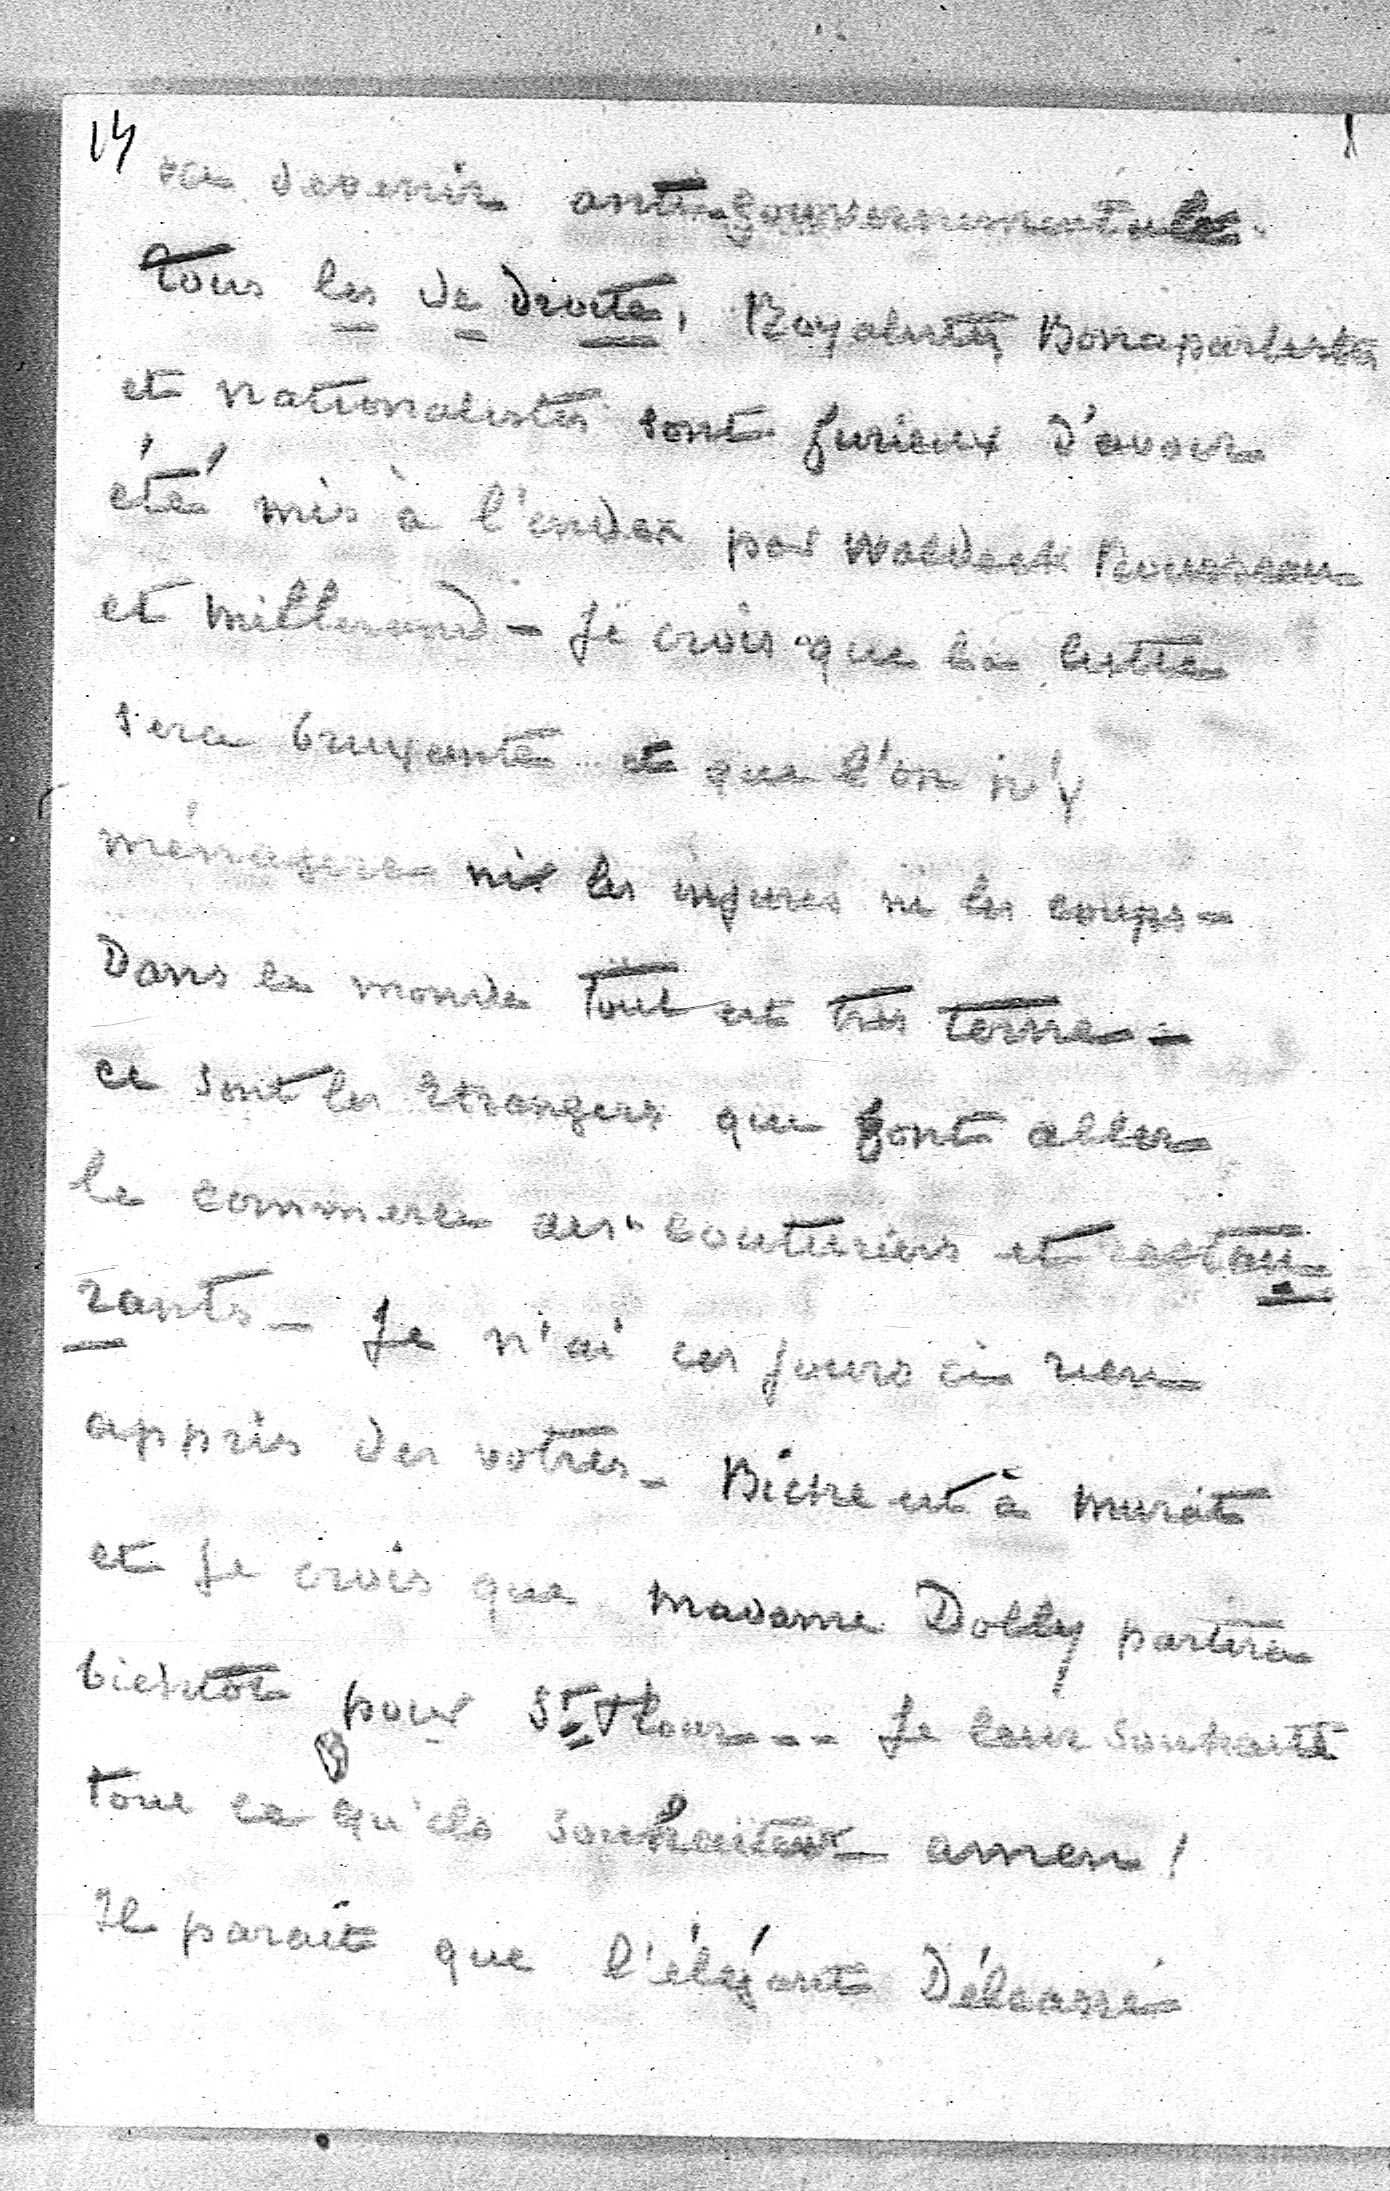 14
va devenir anti-gouvernementale.
Tous les de droite, Royalistes Bonapartistes
et nationalistes sont furieux d'avoir
été mis à l'index par Waldeck Rousseau
et Millerand - Je crois que la lutte
sera bruyante et que l'on n'y
ménagera ni les injures ni les coups -
Dans le monde tout est très terne -
ce sont les étrangers que font aller
le commerce des couturiers et restau-
rants - Je n'ai ces jours ci rien
appris des votres - Biche est à Murat
et Je crois que Madame Dolly partira
bientôt pour St Flour -- Je leur souhaite
tout ce qu'els souhaitent - amen!
Il parait que l'élégant Délcassé